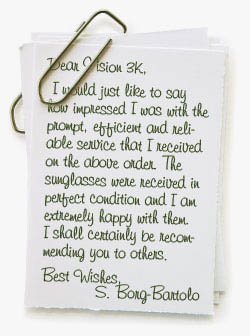 Dear Vision 3K,
I would just like to say
how impressed I was with the
prompt, efficient and reli-
able service that I received
on the above order. The
sunglasses were received in
perfect condition and I am
extremely happy with them.
I shall certainly be recom-
mending you to others.
Best Wishes,
S. Borg-Bartolo